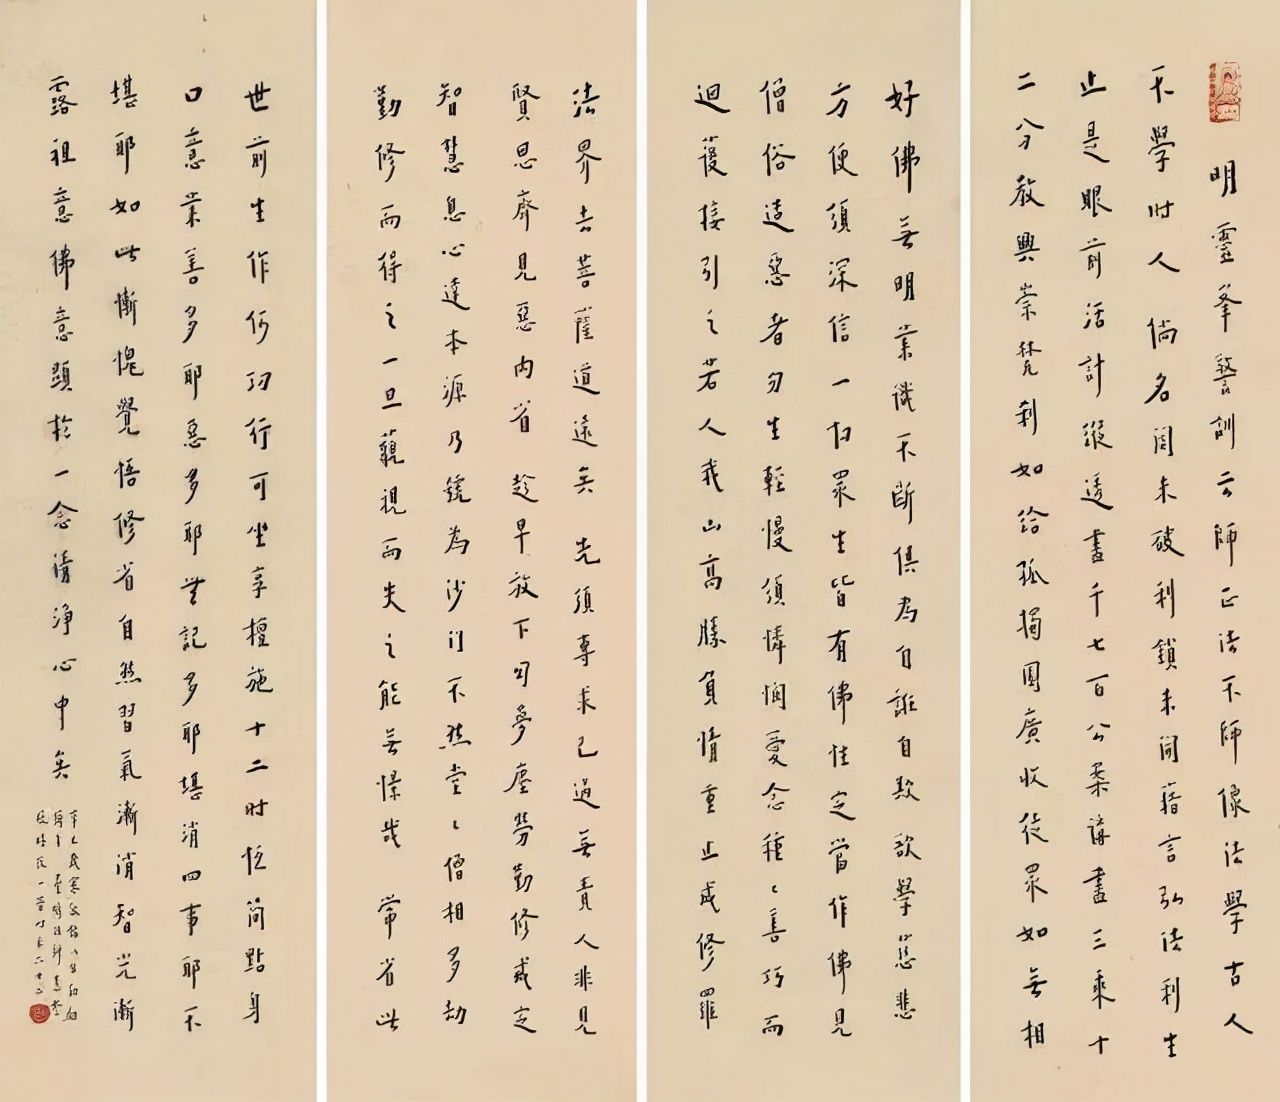 明靈峯警訓云師正法不師像法學古人
不學時人倘名關未破利鎖未開藉言弘法利生
止是眼前活計縱透盡千七百公案講盡三乘十
二分教興崇梵剎如給孤獨園廣收徒眾如無相
好佛無明業識不斷俱為自誑自欺欲學慈悲
方便須深信一切眾生皆有佛性定當作佛見
僧俗造惡者勿生輕慢須憐憫愛念種種善巧而
迴護接引之若人我山高勝負情重止成修羅
法界去菩薩道遠矣先須專求己過無責人非見
賢思齊見惡內省趁早放下幻夢塵勞勤修戒定
智慧息心達本源乃號為沙門不然堂堂僧相多劫
勤修而得之一旦藐視而失之能無懍哉常省此
世前生作何功行可坐享檀施十二時恆簡點身
口意業善多耶惡多耶無記多耶堪消四事耶不
堪耶如此慚愧覺悟修省自然習氣漸消智光漸
露祖意佛意顯於一念清淨心中矣